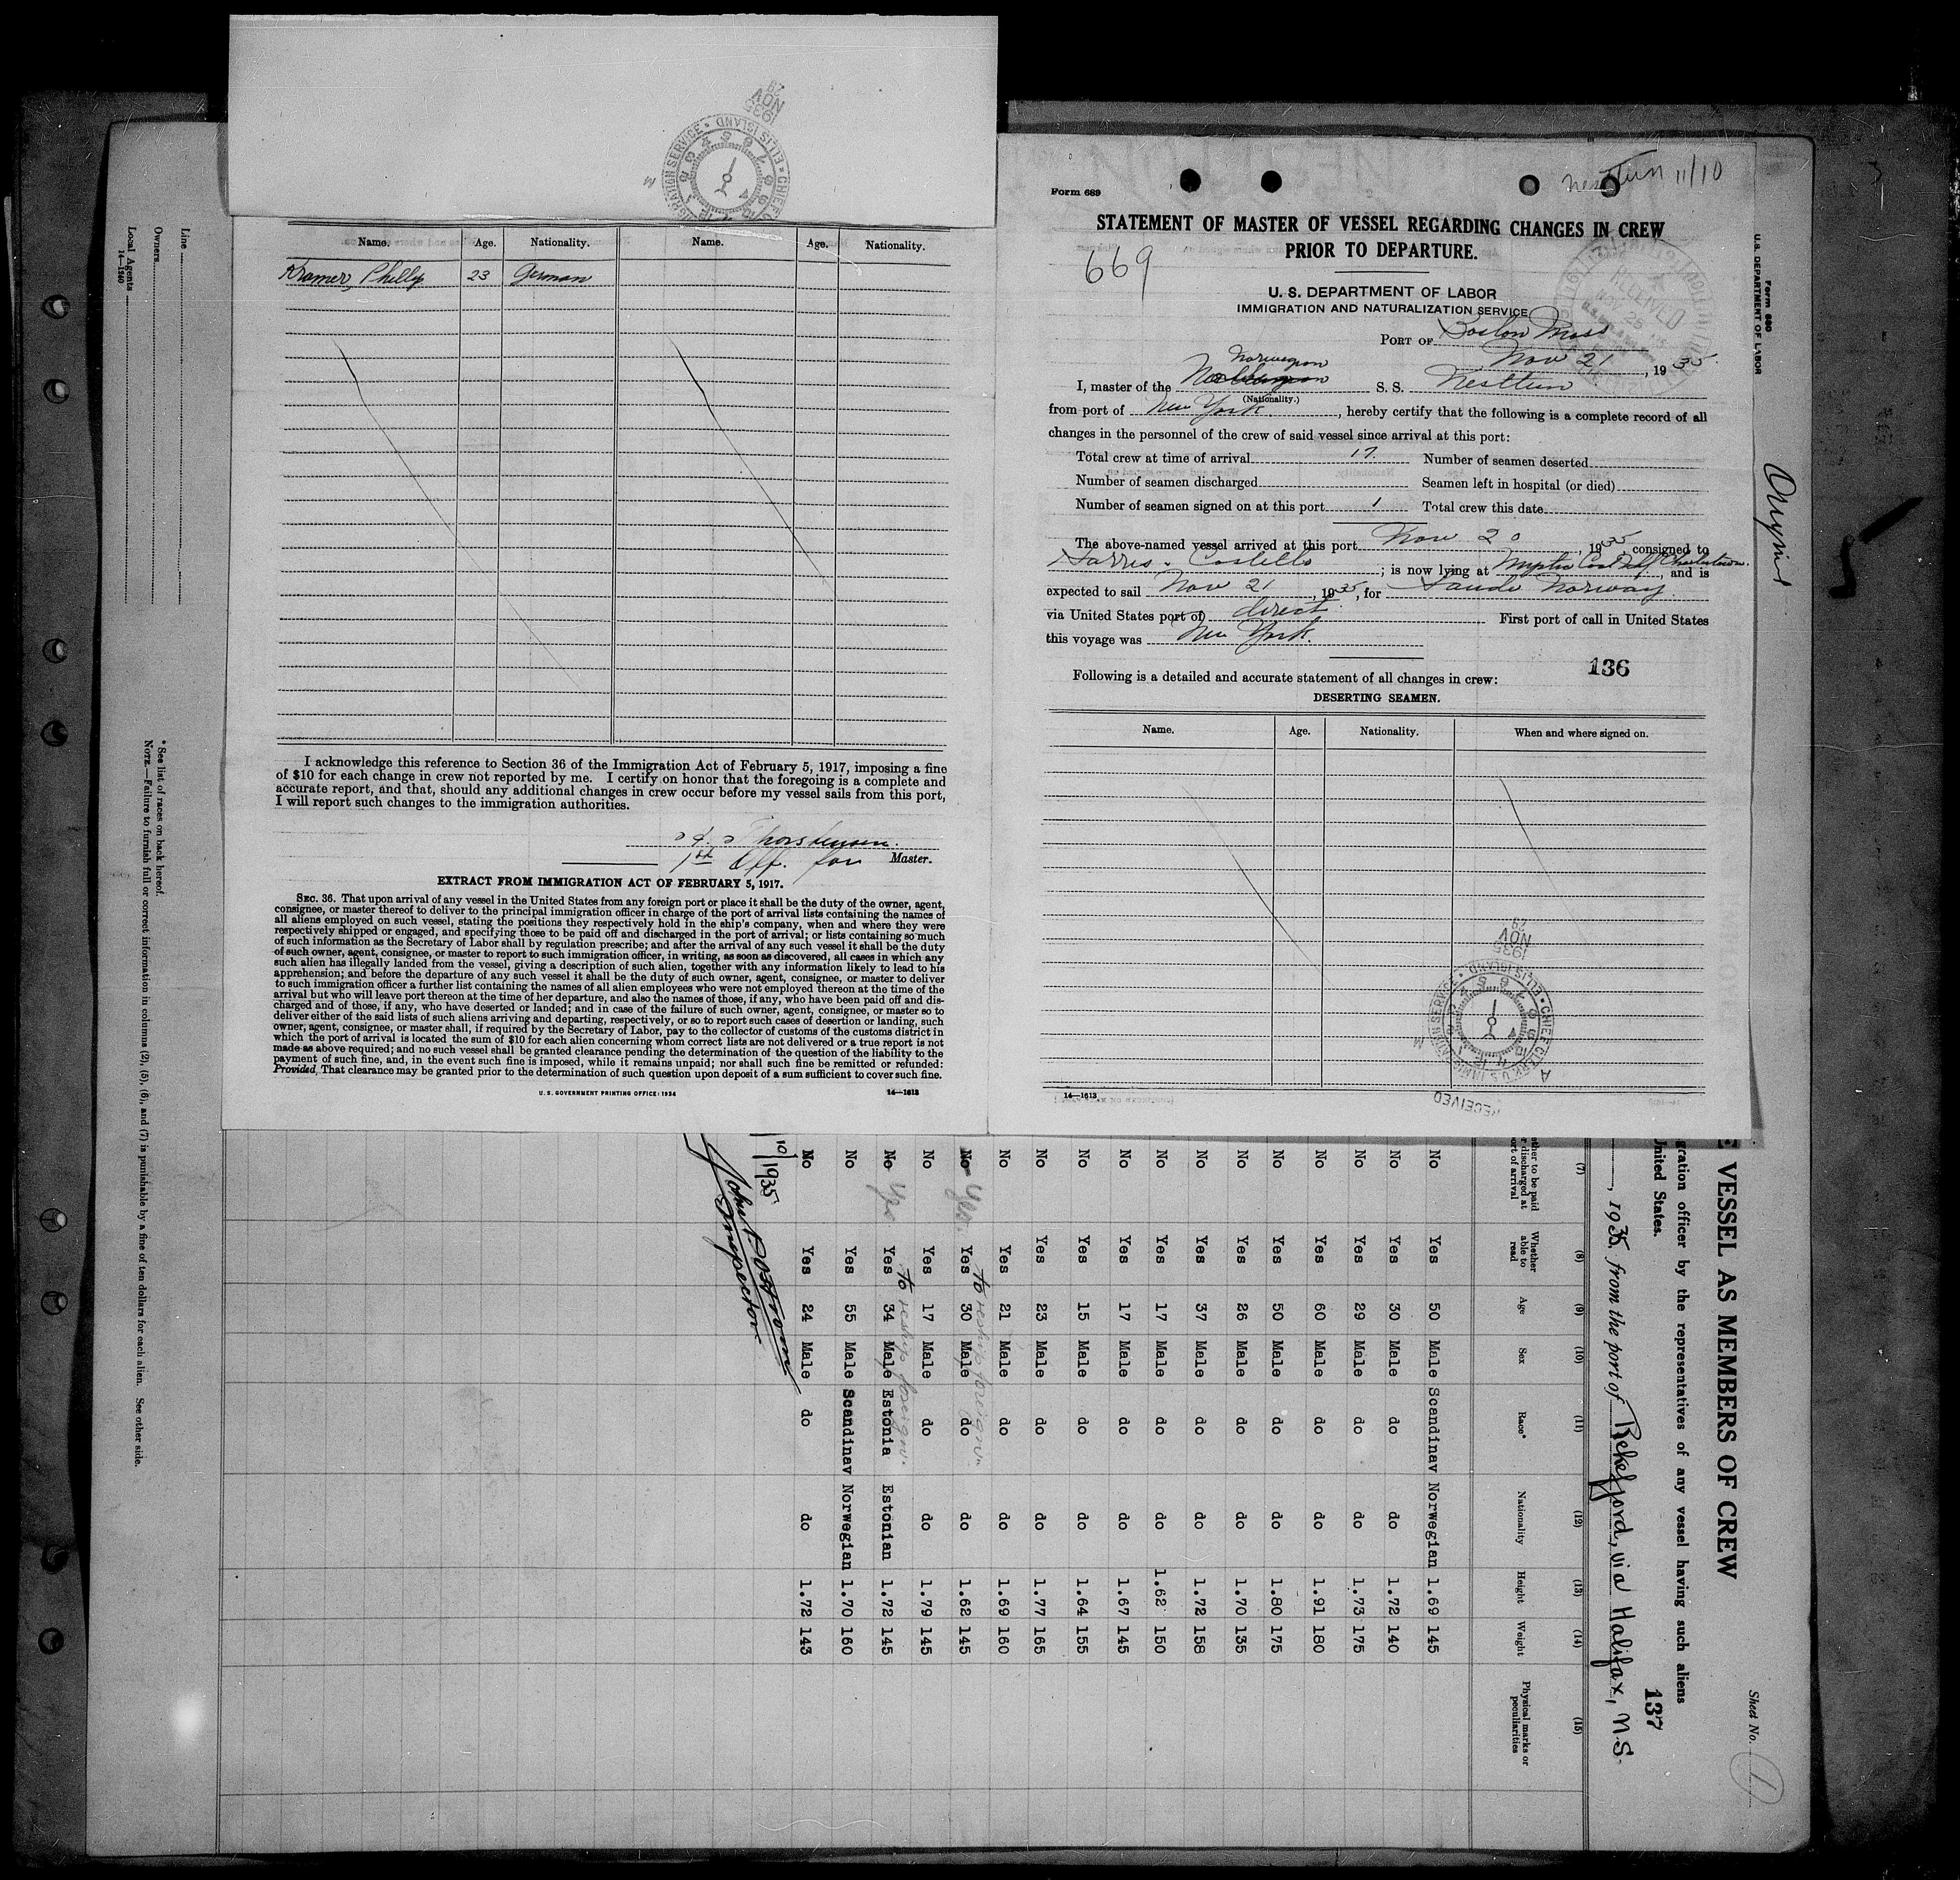 1935
NOV
29
IMMIGRATION SERVICE • ELLIS ISLAND • CHIEF
M
Name. Age. Nationality. Name. Age. Nationality.
Kramer, Phillip 23 German
I acknowledge this reference to Section 36 of the Immigration Act of February 5, 1917, imposing a fine
of $10 for each change in crew not reported by me. I certify on honor that the foregoing is a complete and
accurate report, and that, should any additional changes in crew occur before my vessel sails from this port,
I will report such changes to the immigration authorities.
Thorstensen.
1st Off. for Master.
EXTRACT FROM IMMIGRATION ACT OF FEBRUARY 5, 1917.
SEC. 36. That upon arrival of any vessel in the United States from any foreign port or place it shall be the duty of the owner, agent,
consignee, or master thereof to deliver to the principal immigration officer in charge of the port of arrival lists containing the names of
all aliens employed on such vessel, stating the positions they respectively hold in the ship's company, when and where they were
respectively shipped or engaged, and specifying those to be paid off and discharged in the port of arrival; or lists containing so much
of such information as the Secretary of Labor shall by regulation prescribe; and after the arrival of any such vessel it shall be the duty
of such owner, agent, consignee, or master to report to such immigration officer, in writing, as soon as discovered, all cases in which any
such alien has illegally landed from the vessel, giving a description of such alien, together with any information likely to lead to his
apprehension; and before the departure of any such vessel it shall be the duty of such owner, agent, consignee, or master to deliver
to such immigration officer a further list containing the names of all alien employees who were not employed thereon at the time of the
arrival but who will leave port thereon at the time of her departure, and also the names of those, if any, who have been paid off and dis-
charged and of those, if any, who have deserted or landed; and in case of the failure of such owner, agent, consignee, or master so to
deliver either of the said lists of such aliens arriving and departing, respectively, or so to report such cases of desertion or landing, such
owner, agent, consignee, or master shall, if required by the Secretary of Labor, pay to the collector of customs of the customs district in
which the port of arrival is located the sum of $10 for each alien concerning whom correct lists are not delivered or a true report is not
made as above required; and no such vessel shall be granted clearance pending the determination of the question of the liability to the
payment of such fine, and, in the event such fine is imposed, while it remains unpaid; nor shall such fine be remitted or refunded:
Provided, That clearance may be granted prior to the determination of such question upon deposit of a sum sufficient to cover such fine.
U. S. GOVERNMENT PRINTING OFFICE: 1934 14—1613
Form 689
Nesttun 11/10
STATEMENT OF MASTER OF VESSEL REGARDING CHANGES IN CREW
PRIOR TO DEPARTURE.
669
U. S. DEPARTMENT OF LABOR
IMMIGRATION AND NATURALIZATION SERVICE
RECEIVED
NOV 25
PORT OF Boston Mass
Nov 21, 1935
Norwegian
I, master of the S. S. Nesttun
(Nationality.)
from port of New York, hereby certify that the following is a complete record of all
changes in the personnel of the crew of said vessel since arrival at this port:
Total crew at time of arrival 17 Number of seamen deserted
Number of seamen discharged Seamen left in hospital (or died)
Number of seamen signed on at this port 1 Total crew this date
The above-named vessel arrived at this port Nov 20, 1935, consigned to
Costello; is now lying at Mystic Coal Whf Charlestown, and is
expected to sail Nov 21, 1935, for Sande Norway
via United States port of direct First port of call in United States
this voyage was New York.
136
Following is a detailed and accurate statement of all changes in crew:
DESERTING SEAMEN.
Name. Age. Nationality. When and where signed on.
1935
NOV
29
IMMIGRATION SERVICE • ELLIS ISLAND • CHIEF CLERK U.S.
M
A
RECEIVED
14—1613
Form 680
U. S. DEPARTMENT OF LABOR
Original
Sheet No. 1
VESSEL AS MEMBERS OF CREW
gration officer by the representatives of any vessel having such aliens
United States.
137
, 1935, from the port of Rekefjord, via Halifax, N.S.
(7) (8) (9) (10) (11) (12) (13) (14) (15)
Whether to be paid or discharged at port of arrival
Whether able to read
Age
Sex
Race*
Nationality
Height
Weight
Physical marks or peculiarities
No Yes 50 Male Scandinav Norwegian 1.69 145
No Yes 30 Male do do 1.72 140
No Yes 29 Male do do 1.73 175
No Yes 60 Male do do 1.91 180
No Yes 50 Male do do 1.80 175
No Yes 26 Male do do 1.70 135
No Yes 37 Male do do 1.72 158
No Yes 17 Male do do 1.62 150
No Yes 17 Male do do 1.67 145
No Yes 15 Male do do 1.64 155
No Yes 23 Male do do 1.77 165
No Yes 21 Male do do 1.69 160
to reship foreign.
No Yes. Yes 30 Male do do 1.62 145
No Yes 17 Male do do 1.79 145
to reship foreign.
No Yes Yes 34 Male Estonia Estonian 1.72 145
No Yes 55 Male Scandinav Norwegian 1.70 160
No Yes 24 Male do do 1.72 143
10/1935
John
Inspector
Line
Owners
Local Agents
14—1240
* See list of races on back hereof.
NOTE.—Failure to furnish full or correct information in columns (2), (5), (6), and (7) is punishable by a fine of ten dollars for each alien. See other side.